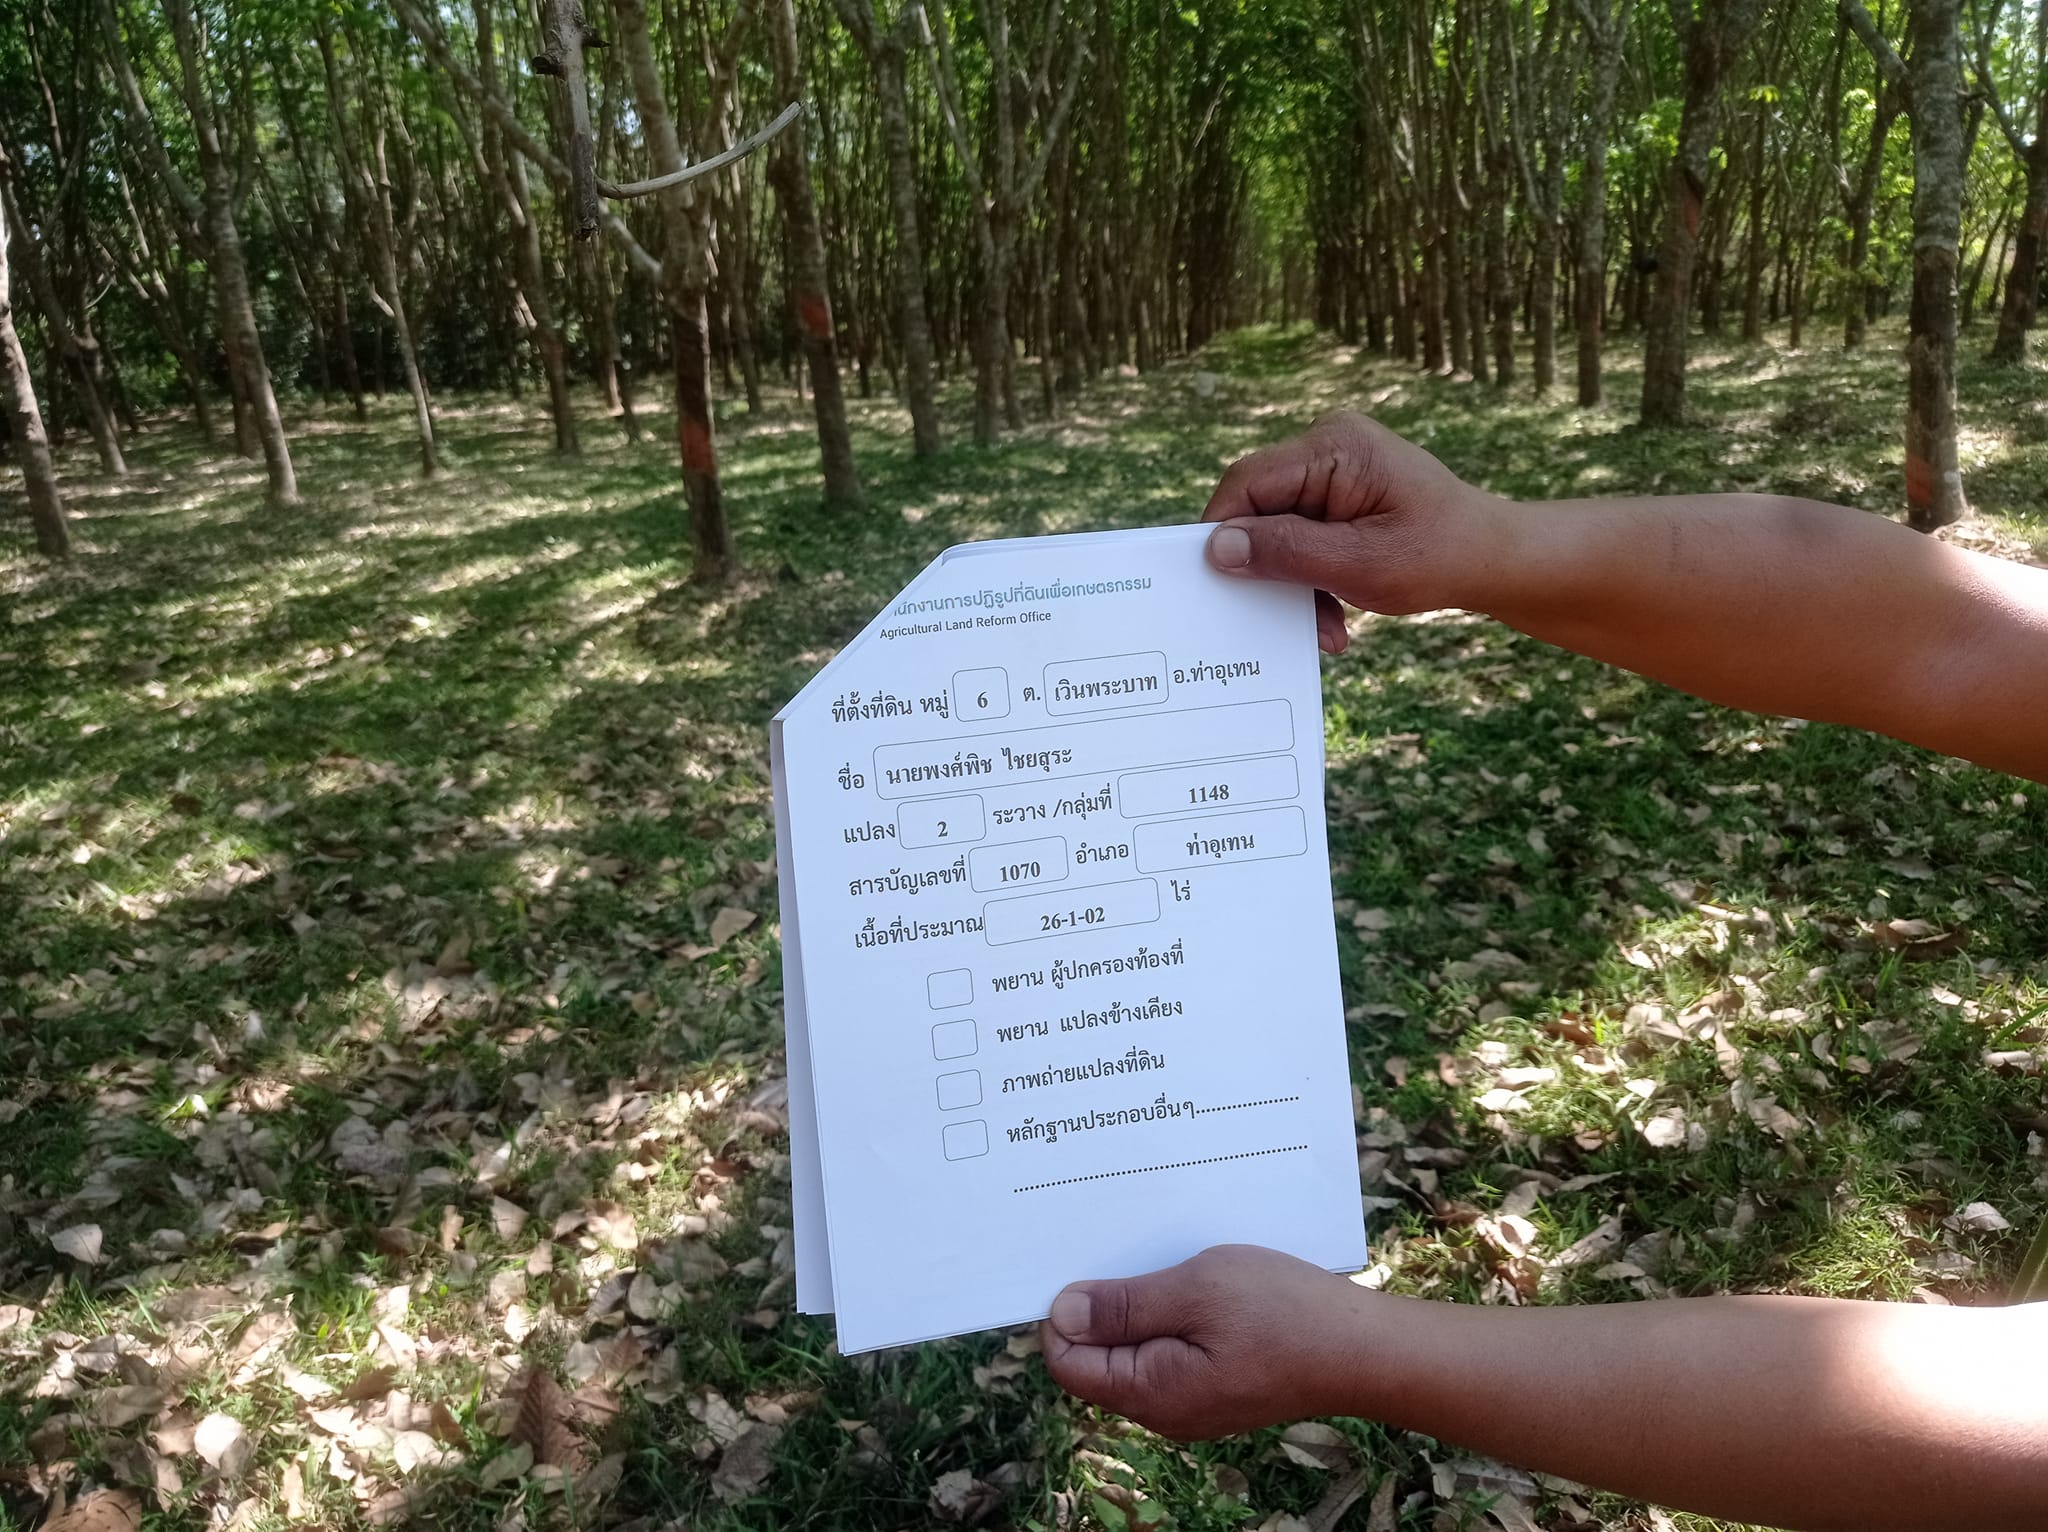 สำนักงานการปฏิรูปที่ดินเพื่อเกษตรกรรม
Agricultural Land Reform Office
ที่ตั้งที่ดิน หมู่ 6 ต. เวินพระบาท อ.ท่าอุเทน
ชื่อ นายพงศ์พิช ไชยสุระ
แปลง 2 ระวาง /กลุ่มที่ 1148
สารบัญเลขที่ 1070 อำเภอ ท่าอุเทน
เนื้อที่ประมาณ 26-1-02 ไร่
พยาน ผู้ปกครองท้องที่
พยาน แปลงข้างเคียง
ภาพถ่ายแปลงที่ดิน
หลักฐานประกอบอื่นๆ....................
..................................................